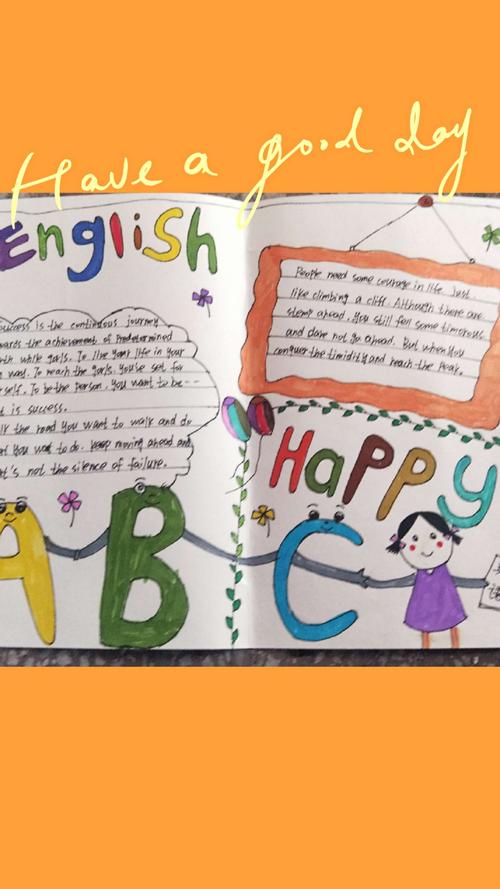 Have a good day
English
success is the continuous journey
wards the achievement of predetermined
orth while goals. To live your life in your
way. To reach the goals, you've set for
self. To be the person. You want to be---
t is success.
lk the road You want to walk and do
You want to do. keep moving ahead and
t's not the silence of failure.
People need some courage in life. Just
like climbing a cliff. Although there are
steep ahead. You still fell some timerous
and dare not go ahead. But when You
conquer the timidity and reach the peak.
HaPPy
A B C